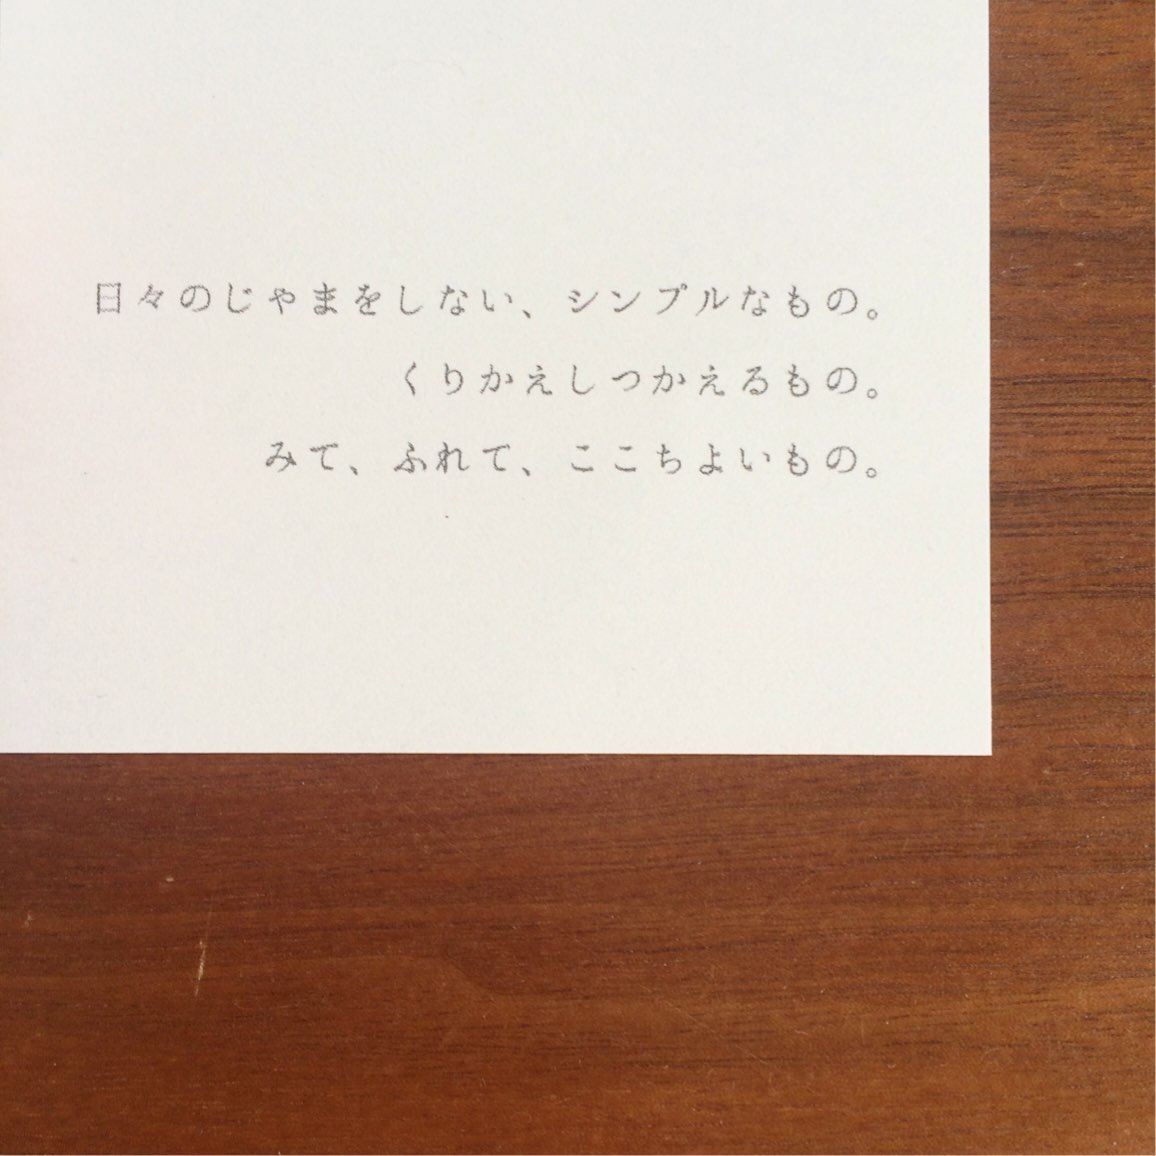 日々のじゃまをしない、シンプルなもの。
くりかえしつかえるもの。
みて、ふれて、ここちよいもの。